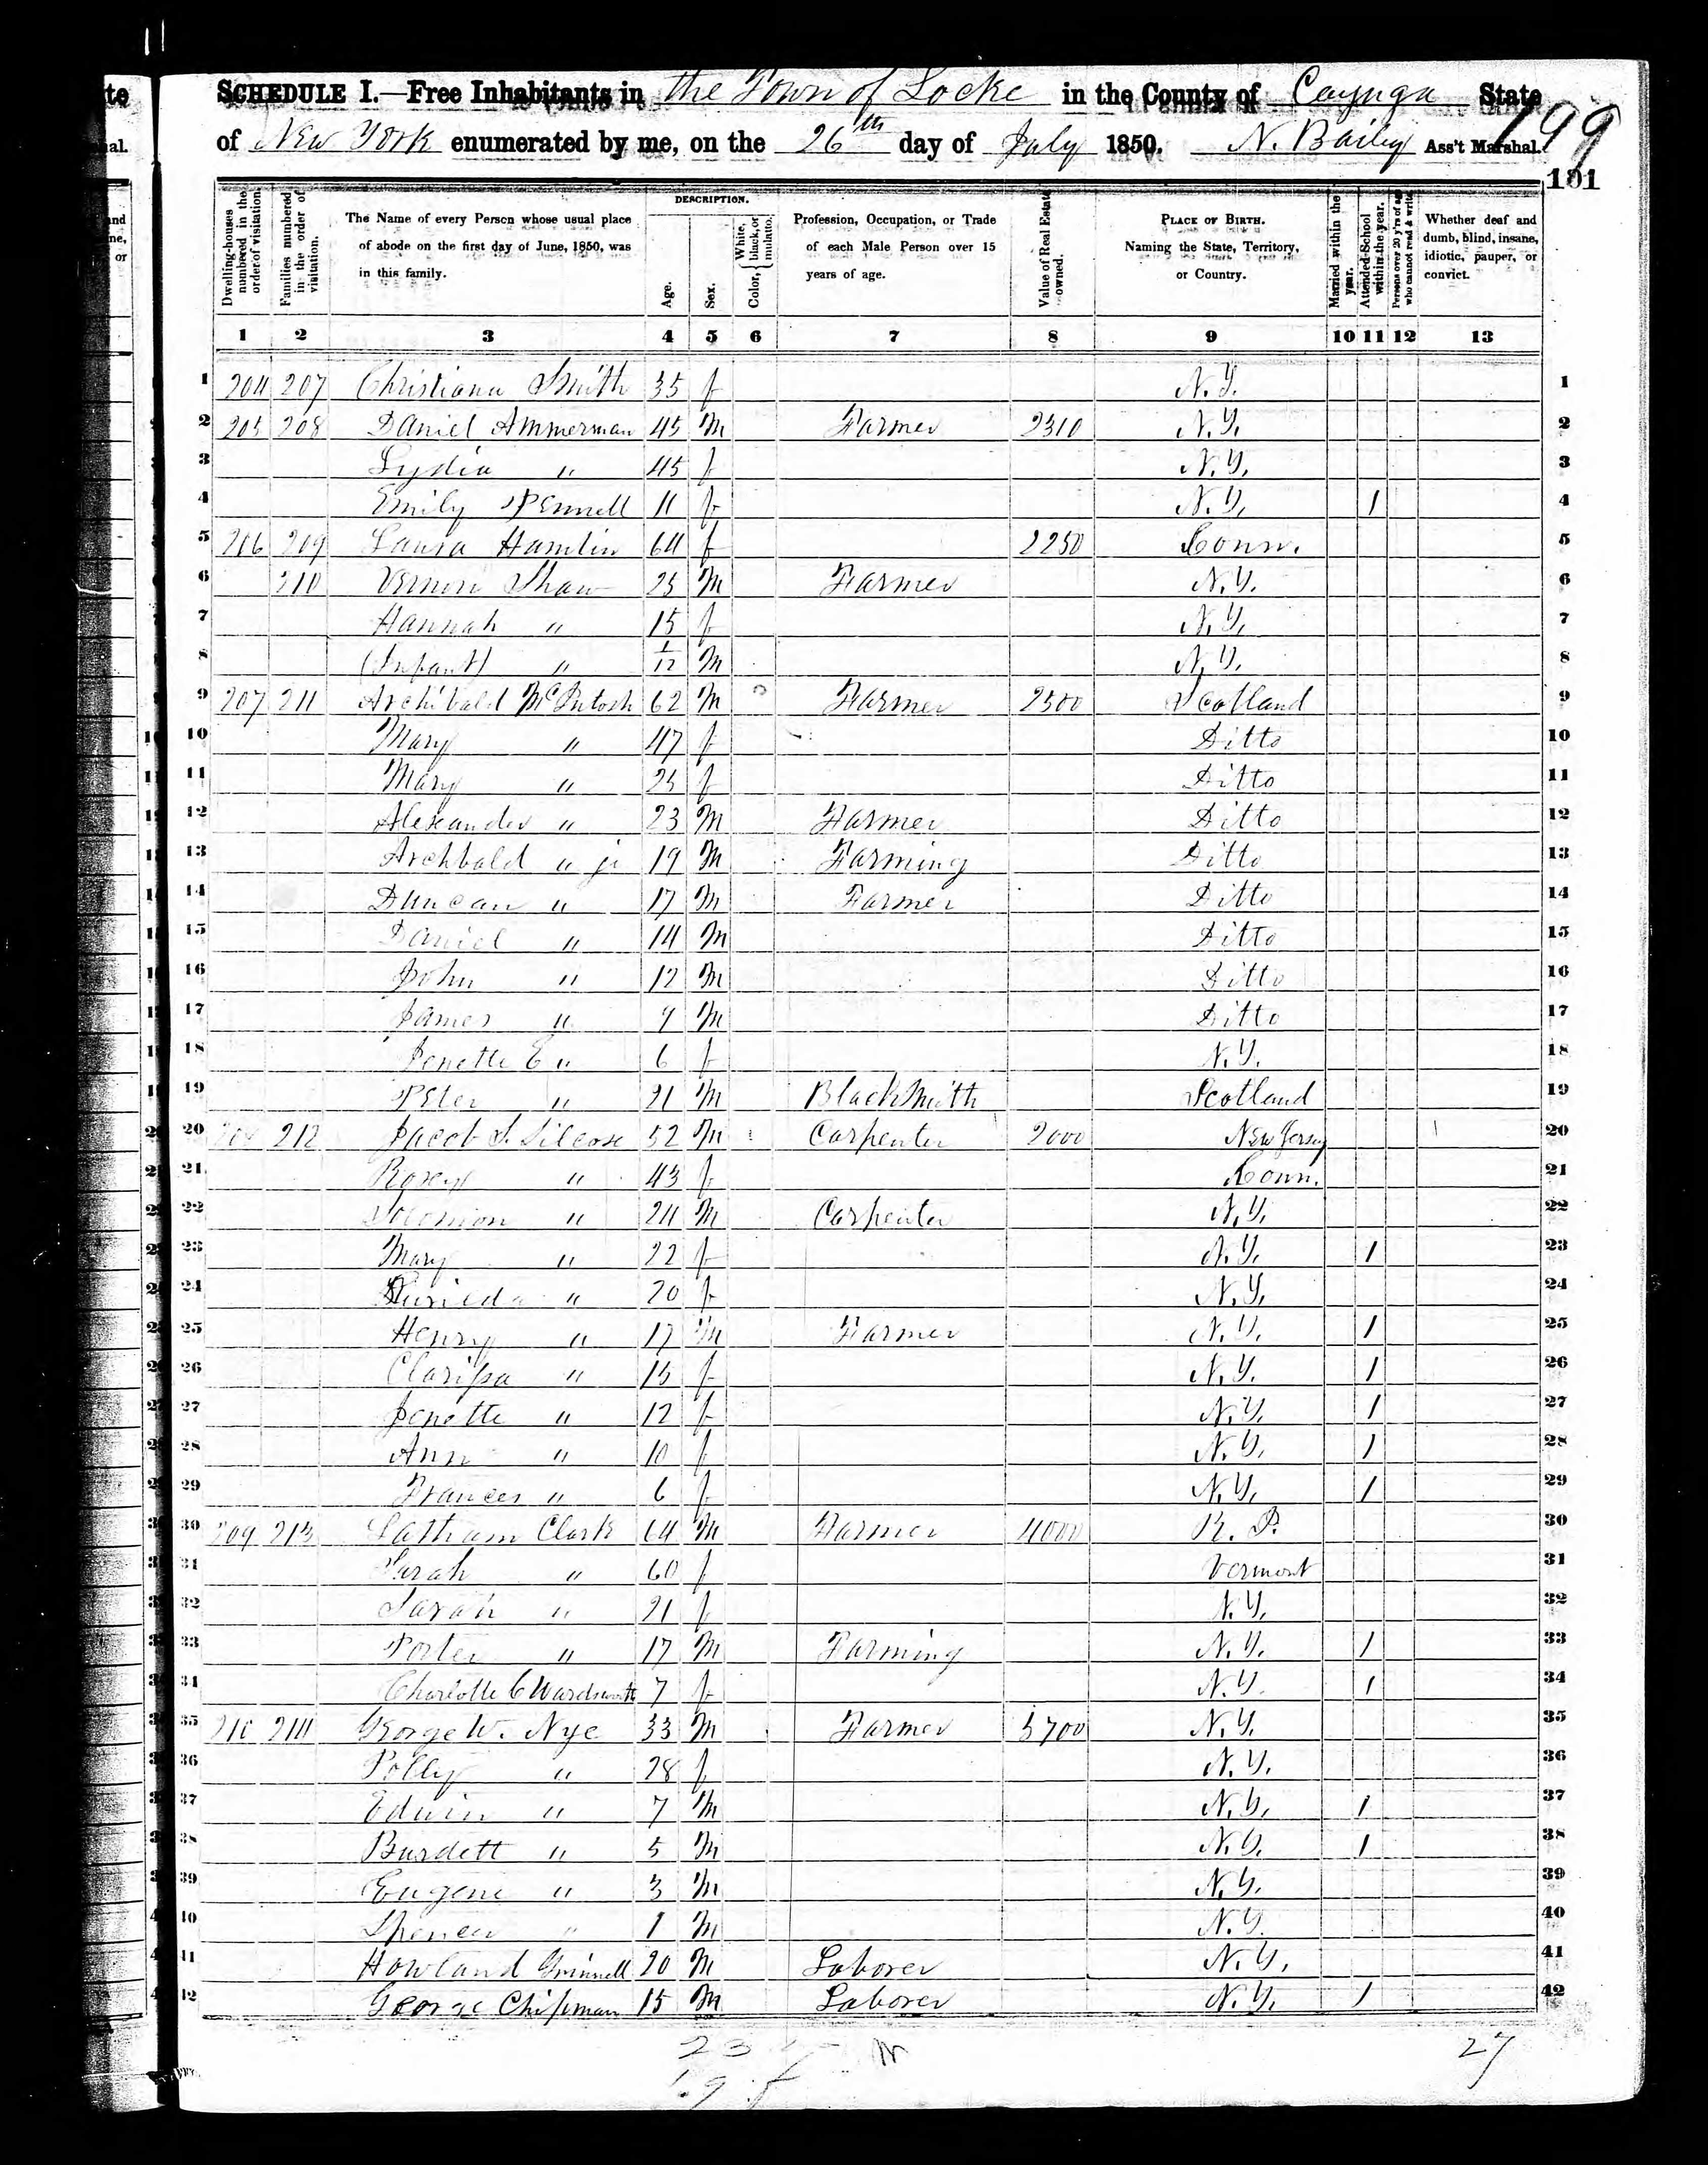 SCHEDULE I.—Free Inhabitants in the Town of Locke in the County of Cayuga State
of New York enumerated by me, on the 26th day of July 1850. N. Bailey Ass't Marshal.
199
101
Dwelling-houses numbered in the order of visitation.
Families numbered in the order of visitation.
The Name of every Person whose usual place of abode on the first day of June, 1850, was in this family.
DESCRIPTION.
Age.
Sex.
Color, { White, black, or mulatto.
Profession, Occupation, or Trade of each Male Person over 15 years of age.
Value of Real Estate owned.
PLACE OF BIRTH. Naming the State, Territory, or Country.
Married within the year.
Attended School within the year.
Persons over 20 y'rs of age who cannot read & write.
Whether deaf and dumb, blind, insane, idiotic, pauper, or convict.
1 2 3 4 5 6 7 8 9 10 11 12 13
1 204 207 Christiana Smith 35 f N.Y. 1
2 205 208 Daniel Ammerman 45 M Farmer 2310 N.Y. 2
3 Lydia " 45 f N.Y. 3
4 Emily Pennell 11 f N.Y. 1 4
5 206 209 Laura Hamlin 64 f 2250 Conn. 5
6 210 Vernon Shaw 25 M Farmer N.Y. 6
7 Hannah " 15 f N.Y. 7
8 (Infant) " 1/12 M N.Y. 8
9 207 211 Archibald McIntosh 62 M Farmer 2500 Scotland 9
10 Mary " 47 f Ditto 10
11 Mary " 25 f Ditto 11
12 Alexander " 23 M Farmer Ditto 12
13 Archbald " jr 19 M Farming Ditto 13
14 Duncan " 17 M Farmer Ditto 14
15 Daniel " 14 M Ditto 15
16 John " 12 M Ditto 16
17 James " 9 M Ditto 17
18 Jenette E " 6 f N.Y. 18
19 Peter " 21 M BlackSmith Scotland 19
20 208 212 Jacob S. Silcose 52 M Carpenter 2000 New Jersey 20
21 Roxey " 43 f Conn. 21
22 Solomon " 24 M Carpenter N.Y. 22
23 Mary " 22 f N.Y. 1 23
24 " 20 f N.Y. 24
25 Henry " 17 M Farmer N.Y. 1 25
26 Clarissa " 15 f N.Y. 1 26
27 Jenette " 12 f N.Y. 1 27
28 Ann " 10 f N.Y. 1 28
29 Frances " 6 f N.Y. 1 29
30 209 213 Latham Clark 64 M Farmer 4000 R. I. 30
31 Sarah " 60 f Vermont 31
32 Sarah " 21 f N.Y. 32
33 Porter " 17 M Farming N.Y. 1 33
34 Charlotte C Wardsworth 7 f N.Y. 1 34
35 210 214 George W. Nye 33 M Farmer 5700 N.Y. 35
36 Polly " 28 f N.Y. 36
37 Edwin " 7 M N.Y. 1 37
38 Burdett " 5 M N.Y. 1 38
39 Eugene " 3 M N.Y. 39
40 Spencer " 1 M N.Y. 40
41 Howland Grinnell 20 M Laborer N.Y. 41
42 George Chipman 15 M Laborer N.Y. 1 42
23 M 27
19 f